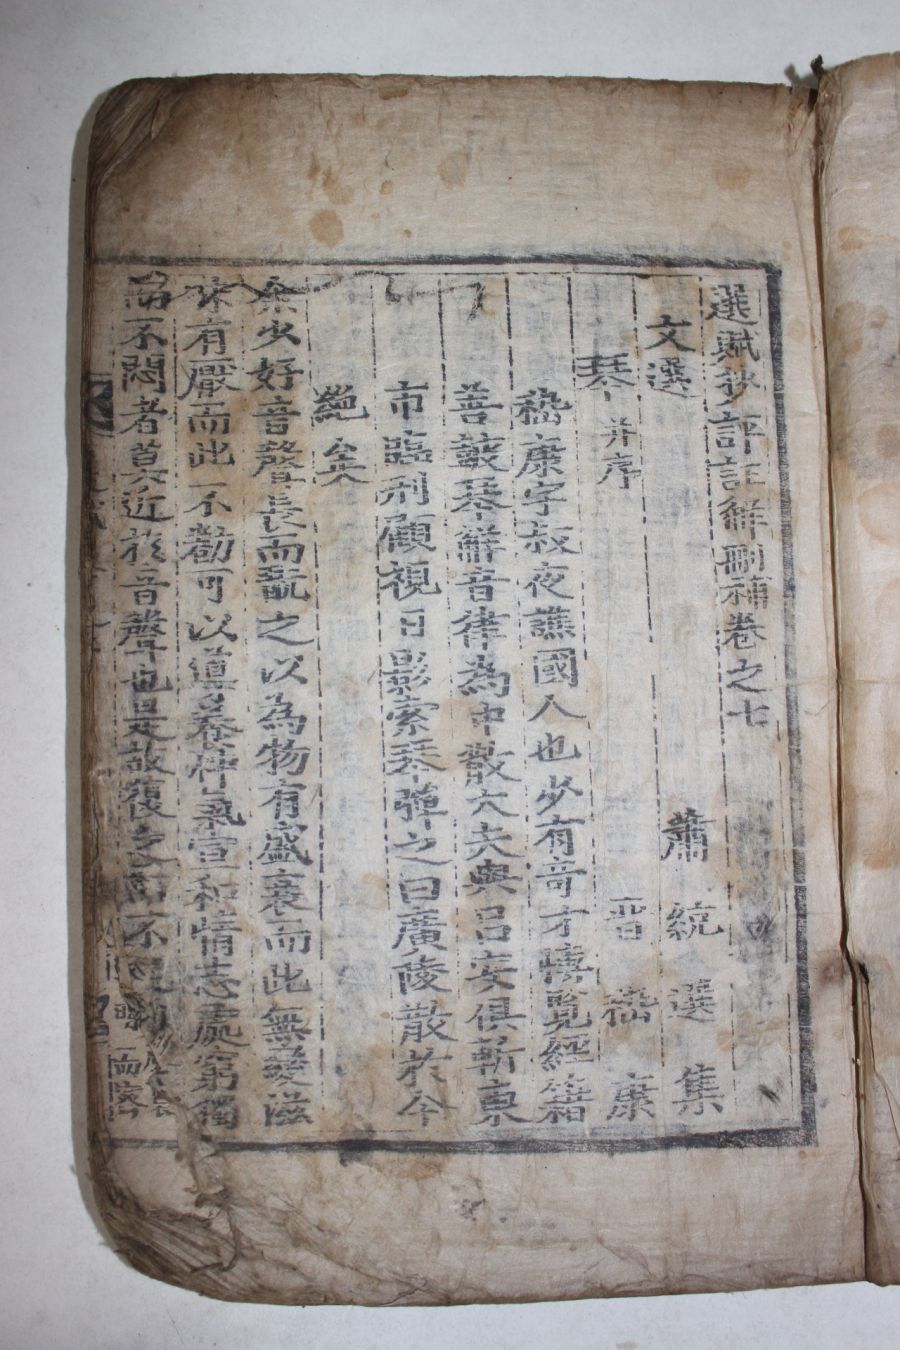 選賦抄評註解刪補卷之七
文選 蕭統選集
琴 并序 晉嵇康
嵇康字叔夜譙國人也少有奇才博覽經籍
善鼓琴解音律為中散大夫與呂安俱斬東
市臨刑顧視日影索琴彈之曰廣陵散於今
絕矣
余少好音聲長而翫之以為物有盛衰而此無變滋
味有厭而此不勌可以導養神氣宣和情志處窮獨
而不悶者莫近於音聲也是故復之而不足